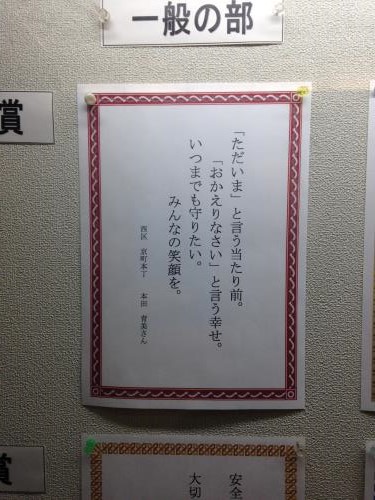 一般の部
賞
「ただいま」と言う当たり前。
「おかえりなさい」と言う幸せ。
いつまでも守りたい。
みんなの笑顔を。
西区 京町本丁 本田 育美さん
賞
安全
大切